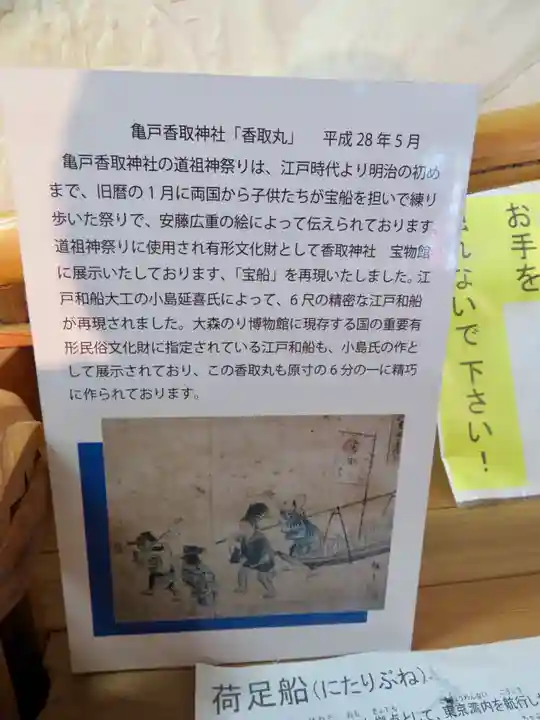 亀戸香取神社「香取丸」　平成28年5月
亀戸香取神社の道祖神祭りは、江戸時代より明治の初め
まで、旧暦の1月に両国から子供たちが宝船を担いで練り
歩いた祭りで、安藤広重の絵によって伝えられております。
道祖神祭りに使用され有形文化財として香取神社　宝物館
に展示いたしております、「宝船」を再現いたしました。江
戸和船大工の小島延喜氏によって、6尺の精密な江戸和船
が再現されました。大森のり博物館に現存する国の重要有
形民俗文化財に指定されている江戸和船も、小島氏の作と
して展示されており、この香取丸も原寸の6分の一に精巧
に作られております。
お手を
れないで下さい！
荷足船(にたりぶね)
東京湾内を航行し